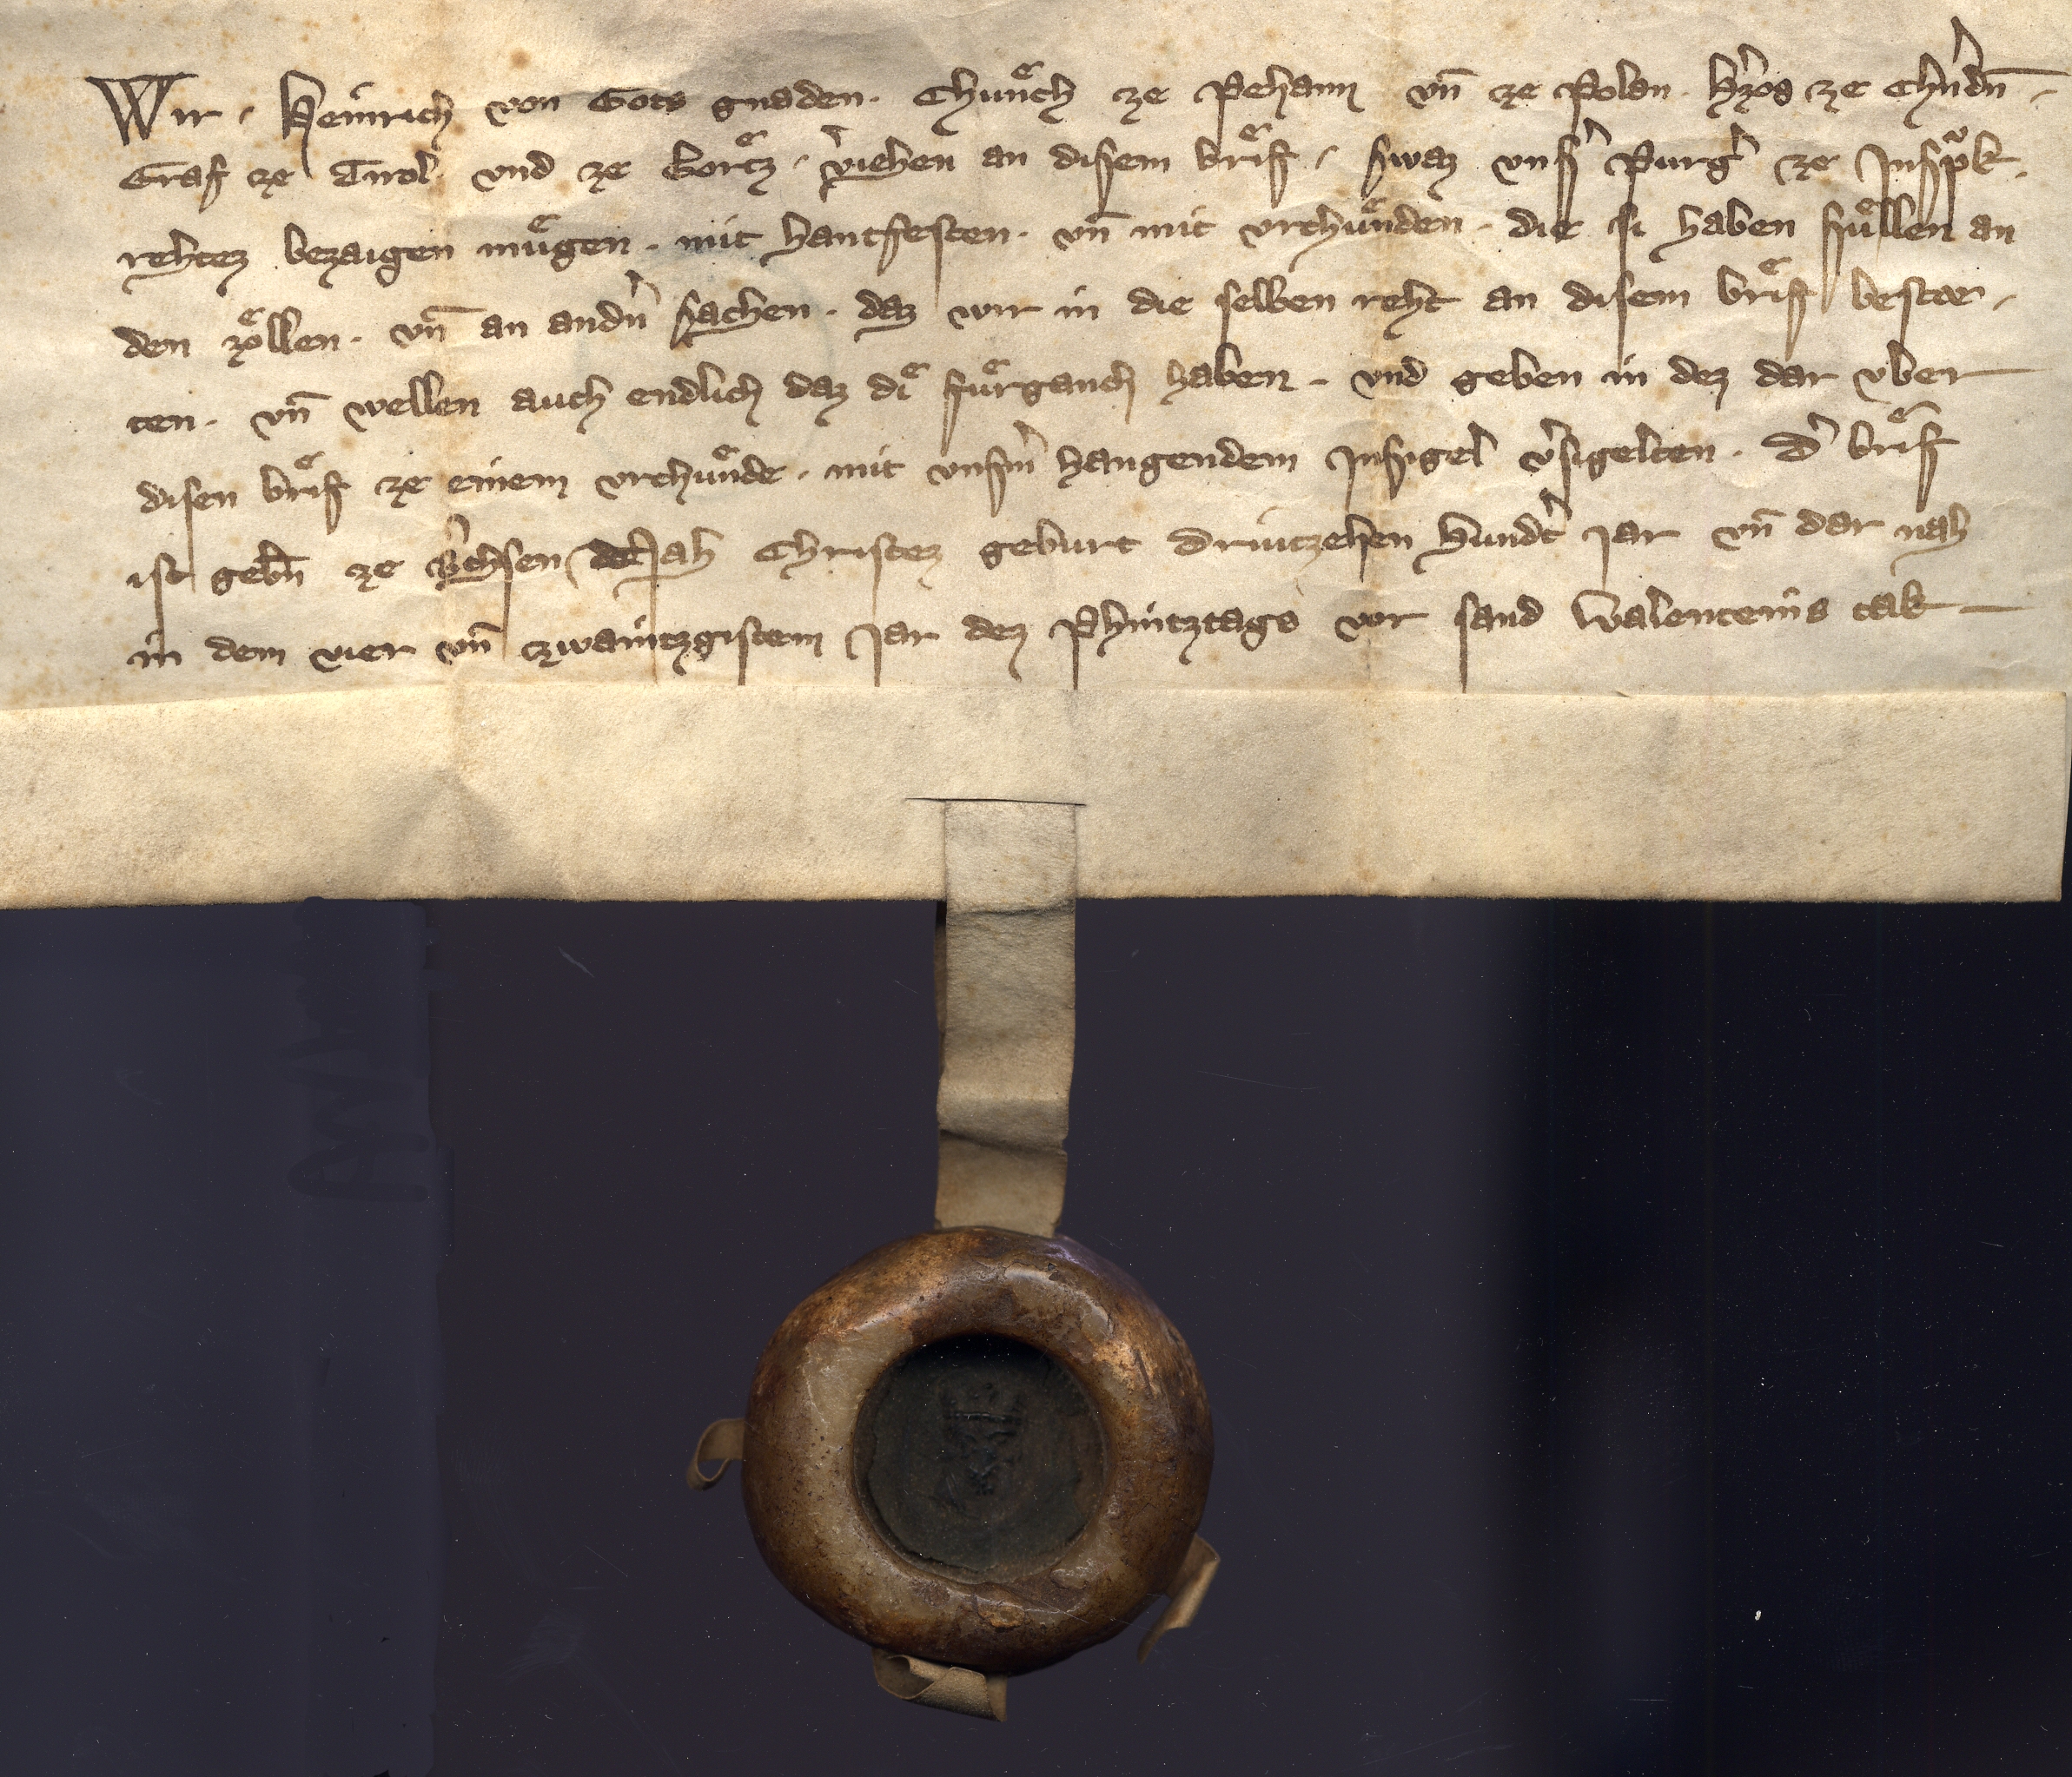 Wir . Heinrich von Gots gnaden . Chuͤnch ze Pehaim vn̄ ze Polan . Hˀzog ze Chˀndn̄ .
Graf ze Tirol vnd ze Gortͤz . vˀiehen an disem briͤf . swaz vnsˀ Purgˀ ze Inspͦk .
rehtez bezaigen muͤgen . mit hantfesten . vn̄ mit vrchuͤnden . die si haben suͤllen an
den zoͤllen . vn̄ an andˀn sachen . daz wir in die selben reht an disem briͤf bestee .
ten . vn̄ wellen auch endlich daz diͤ fuͤrganch haben . vnd geben in dez dar vber
disen briͤf ze einem vrchuͤnde . mit vnsmˀ hangendem Insigel vˀsigelten . Dˀ briͤf
ist gebn̄ ze Bˀichsen Nah Christez geburt Driutzehen Hundˀt jar vn̄ dar nah
in dem vier vn̄ zwaintzgistem Jar dez Phintztags vor sand Walenteins tak